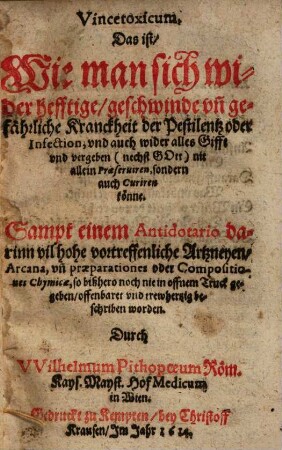 Vincetoxicum.
Das ist/
Wie man sich wi-
der hefftige/geschwinde vñ ge-
fährliche Kranckheit der Pestilentz oder
Infection, vnd auch wider alles Gifft
vnd vergeben (nechst GOtt) nit
allein Præseruiren, sondern
auch Curiren
könne.
Sampt einem Antidotario da-
rinn vil hohe vortreffenliche Artzneyen/
Arcana, vñ præparationes oder Compositio-
nes Chymicæ, so bißhero noch nie in offnem Truck ge-
geben/offenbaret vnd trewhertzig be-
schriben worden.
Durch
VVilhelmum Pithopœum Röm.
Kays. Mayst. Hof Medicum
in Wien.
Gedruckt zu Kempten/bey Christoff
Krausen/Im Jahr 1624.